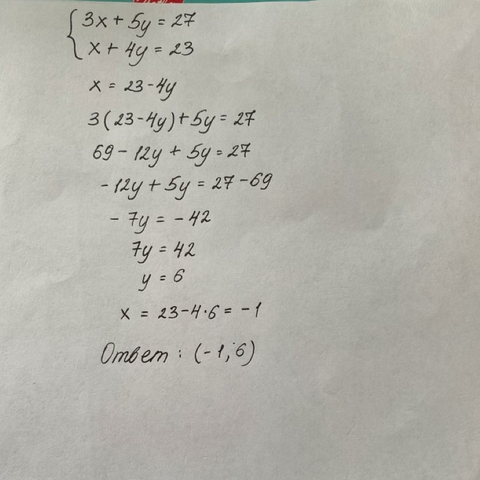 3x + 5y = 27
x + 4y = 23
x = 23-4y
3(23-4y)+5y=27
69-12y + 5y=27
-12y + 5y = 27-69
- 7y = -42
7y = 42
y = 6
x = 23-4·6 = -1
Ответ: (-1;6)